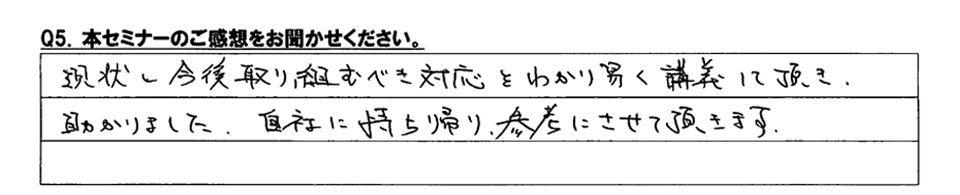 Q5. 本セミナーのご感想をお聞かせください。
現状と今後取り組むべき対応をわかり易く講義して頂き、
助かりました。自社に持ち帰り、参考にさせて頂きます。